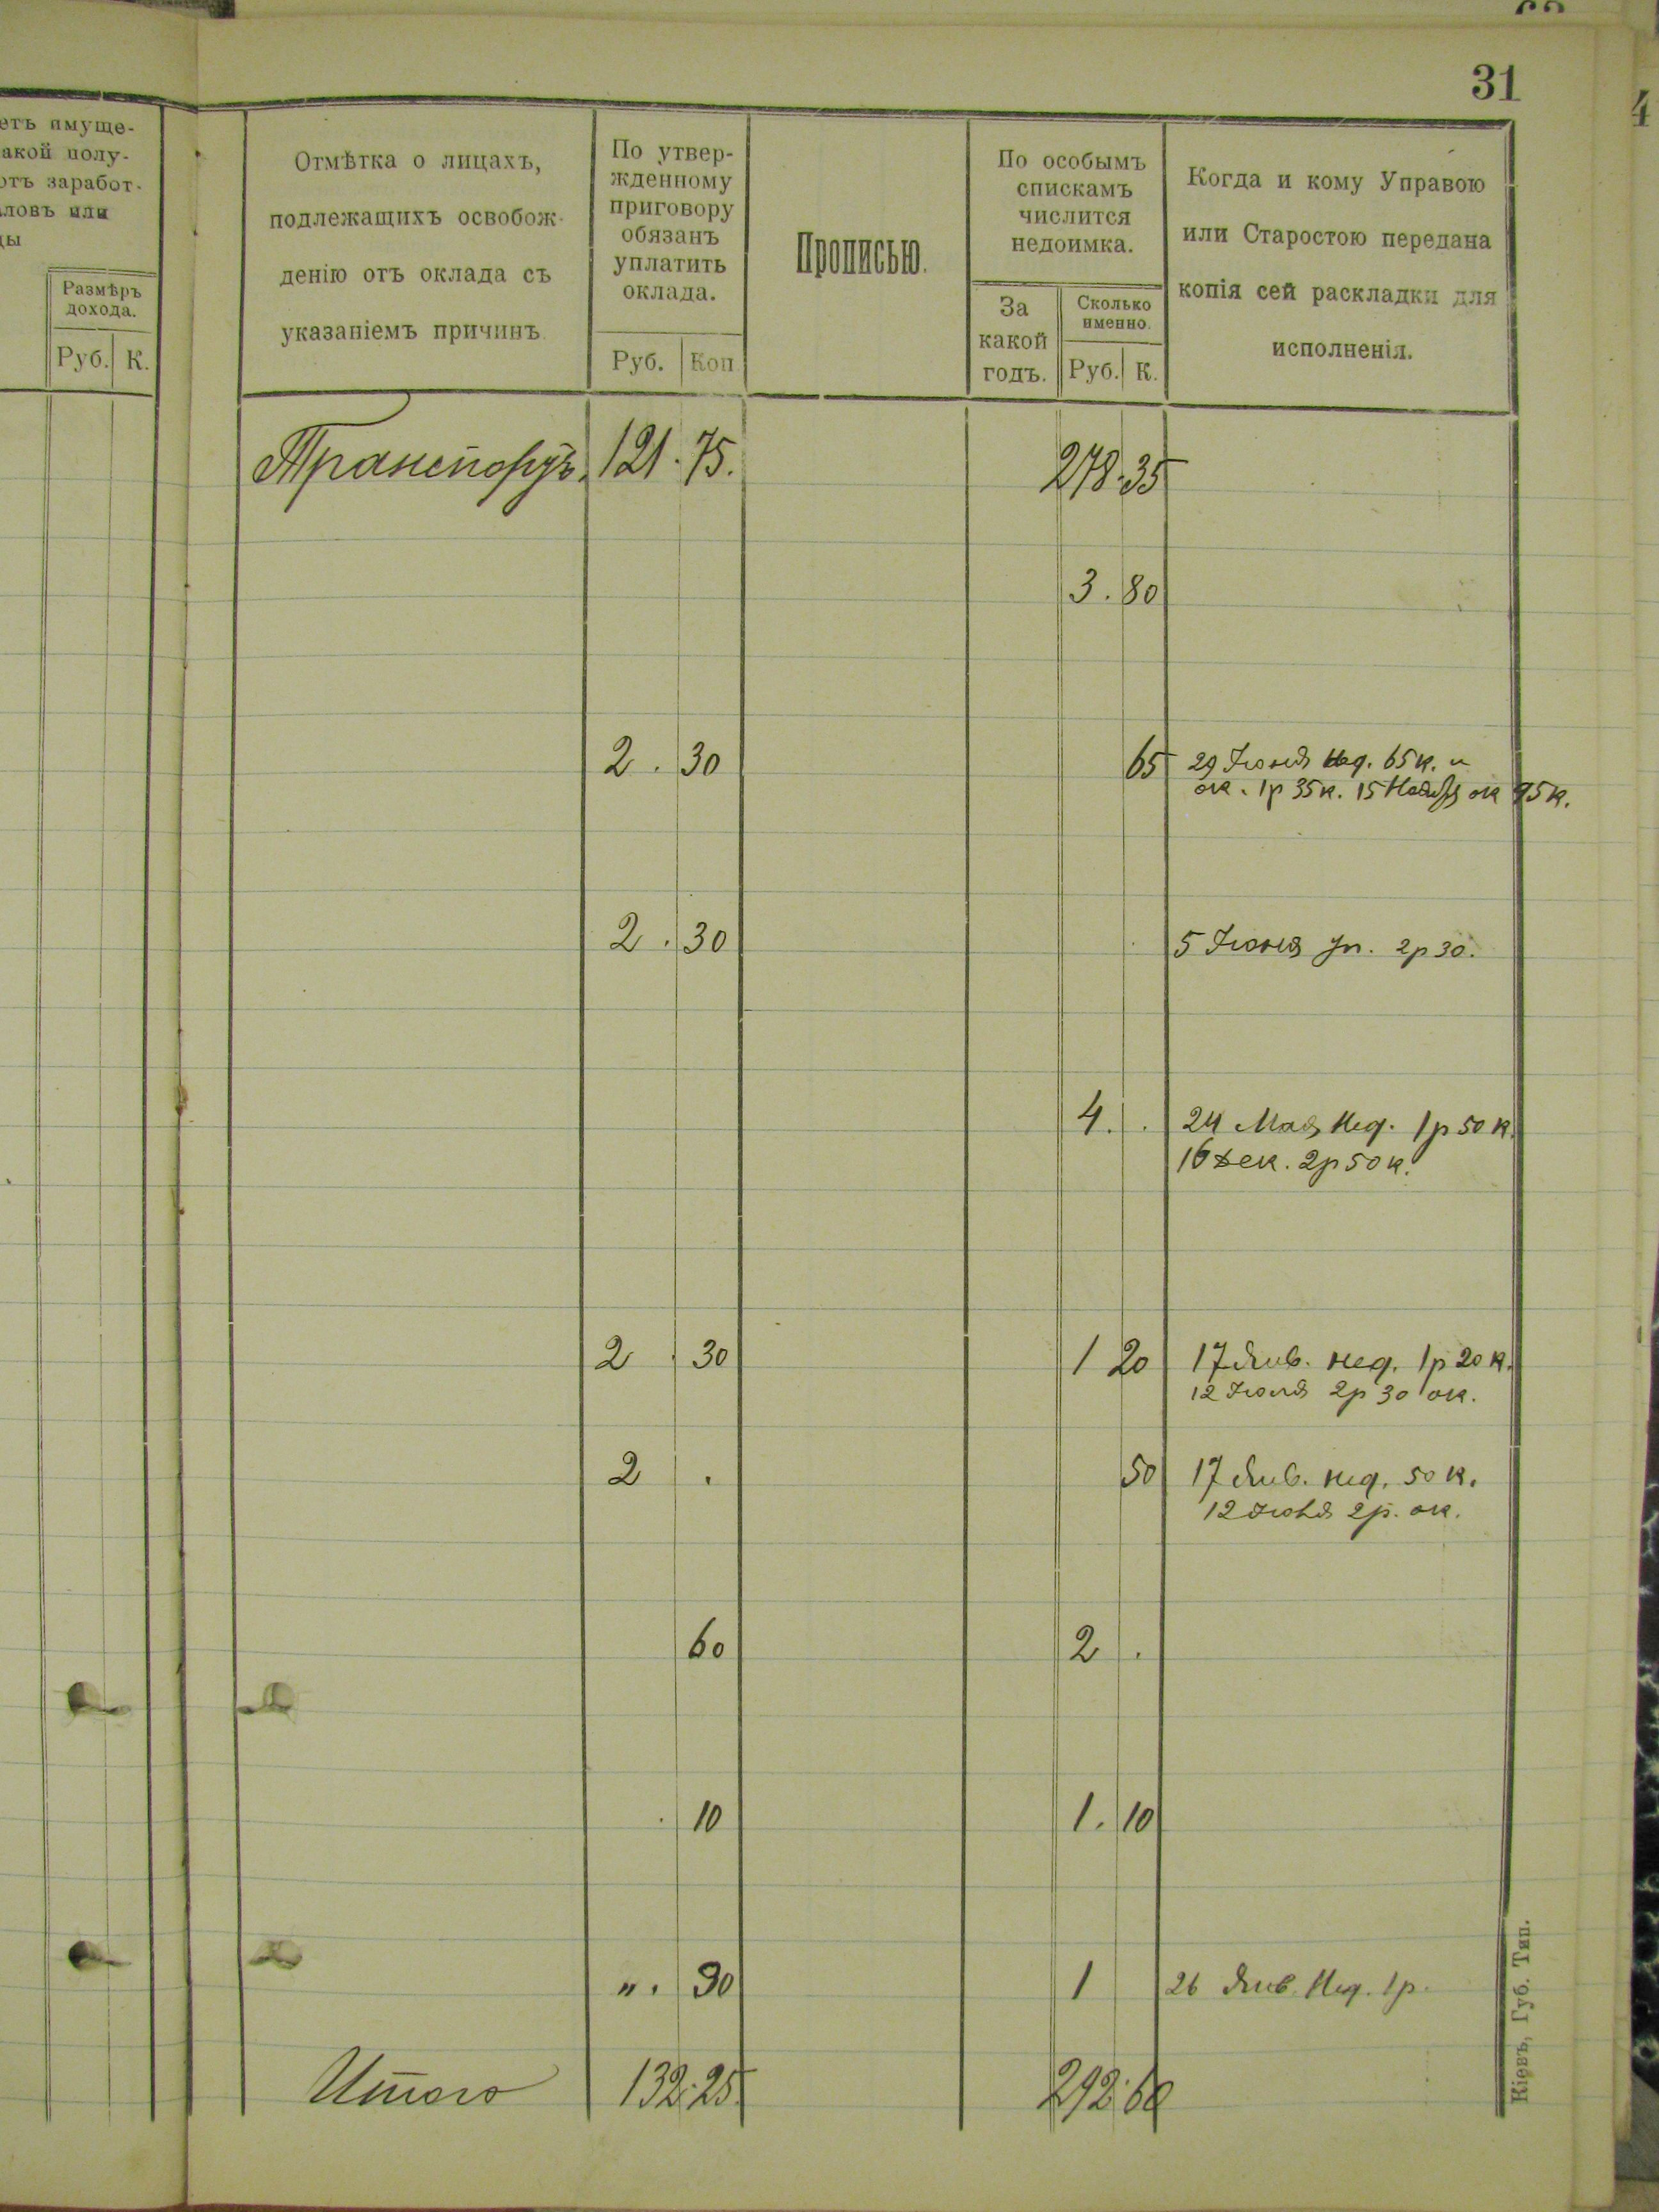 31
4
етъ имуще-
акой полу-
отъ заработ-
ловъ или
ды
Размѣръ
дохода.
Руб. К.
Отмѣтка о лицахъ,
подлежащихъ освобож-
денію отъ оклада съ
указаніемъ причинъ
По утвер-
жденному
приговору
обязанъ
уплатить
оклада.
Руб. Коп
Прописью.
По особымъ
спискамъ
числится
недоимка.
За
какой
годъ.
Сколько
именно.
Руб. К.
Когда и кому Управою
или Старостою передана
копія сей раскладки для
исполненія.
Транспортъ. 121. 75. 278.35
3. 80
2. 30 65 29 Іюня Нед. 65 к. и
ок. 1р 35к. 15 Ноябр ок 95к.
2. 30 5 Іюня Уп. 2р 30.
4. . 24 Мая Нед. 1р 50 к.
16 Дек. 2р 50 к.
2 . 30 1 20 17 Янв. нед. 1р 20 к.
12 Іюля 2р 30 ок.
2 . 50 17 Янв. нед. 50 к.
12 2р. ок.
60 2 .
. 10 1. 10
". 90 1 26 Янв. Нед. 1р.
Итого 132.25. 292.60
Кіевъ, Губ. Тип.